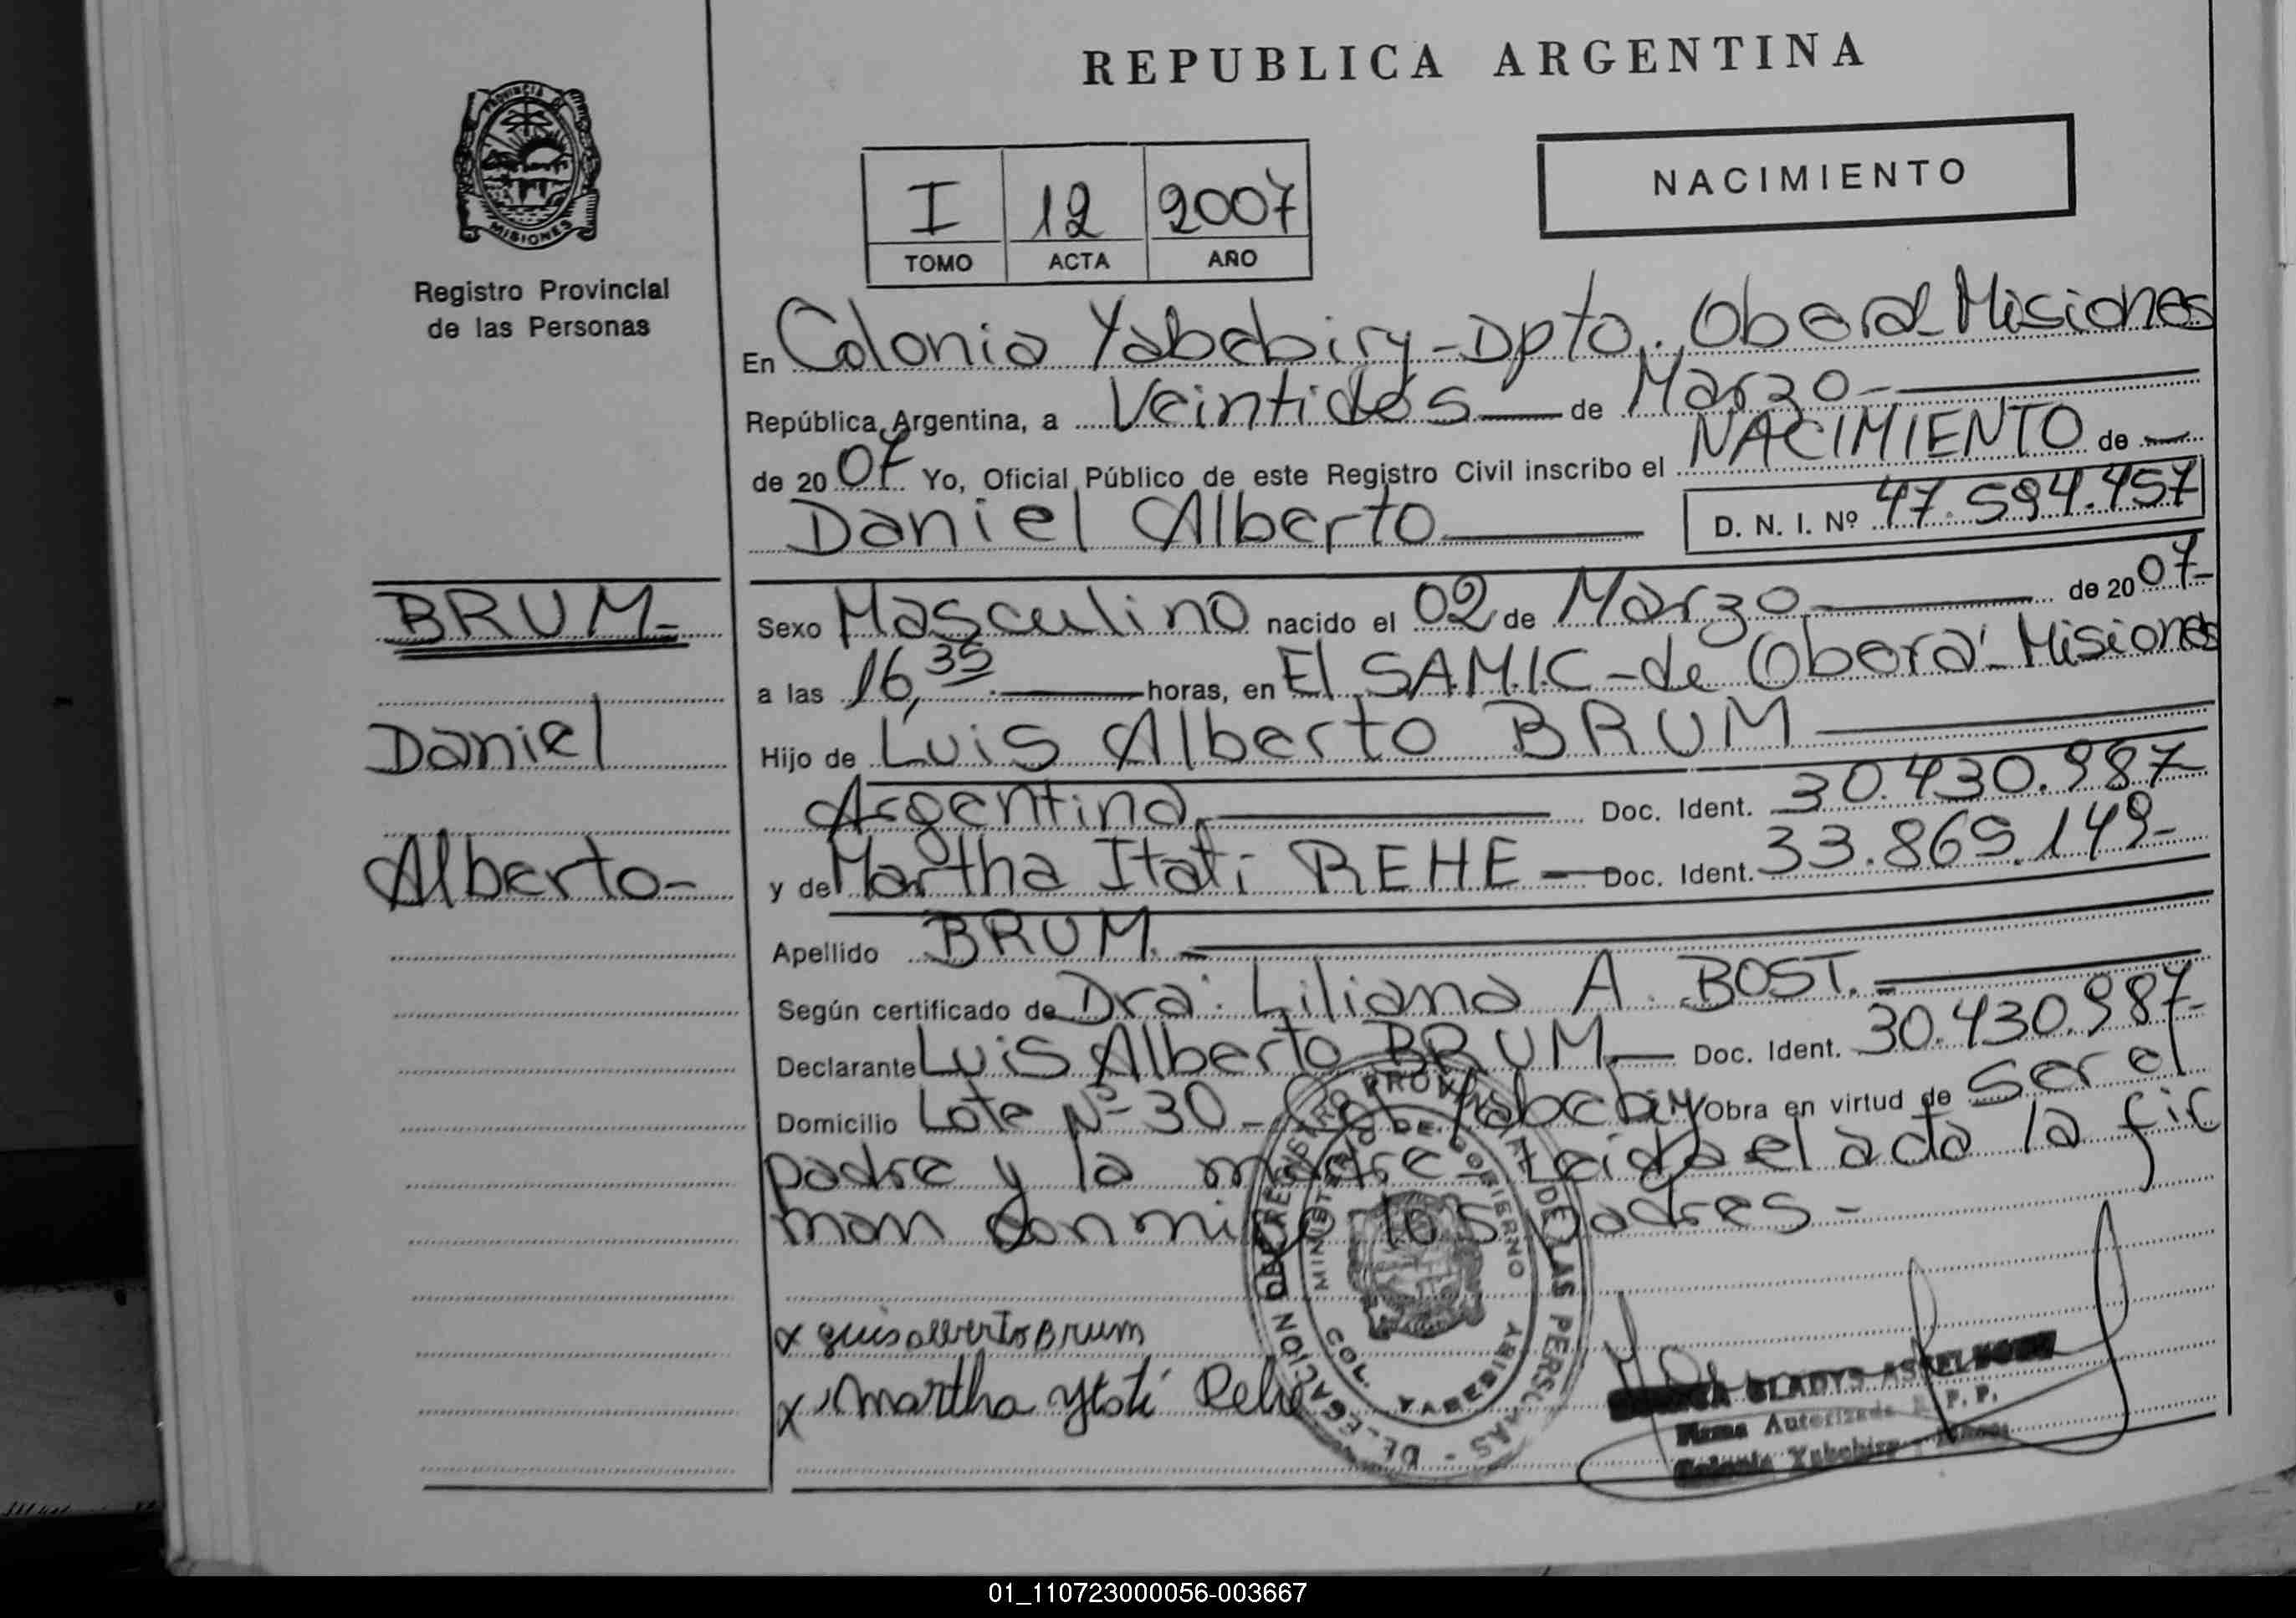 REPUBLICA ARGENTINA
PROVINCIA DE
MISIONES
Registro Provincial
de las Personas
NACIMIENTO
I 12 2007
TOMO ACTA AÑO
En Colonia Yabebiry - Dpto. Oberá - Misiones
República Argentina, a Veintidós de Marzo
de 2007 Yo, Oficial Público de este Registro Civil inscribo el NACIMIENTO de
Daniel Alberto D. N. I. Nº 47.594.457
BRUM -
Daniel
Alberto -
Sexo Masculino nacido el 02 de Marzo de 2007 -
a las 16,35 horas, en El S.A.M.I.C - de Oberá - Misiones
Hijo de Luis Alberto BRUM
Argentina Doc. Ident. 30.430.987 -
y de Martha Itati REHE Doc. Ident. 33.869.149 -
Apellido BRUM. -
Según certificado de Dra: Liliana A. BOST. -
Declarante Luis Alberto BRUM Doc. Ident. 30.430.987 -
Domicilio Lote Nº 30 - Yabebiry Obra en virtud de ser el
padre y la madre Leida el acta la fir
man conmigo los padres -
x Luis alberto Brum
x Martha Ytatí Rehe
REGISTRO PROVINCIAL DE LAS PERSONAS - DELEGACION
MINISTERIO DE GOBIERNO
COL. YABEBIRY
GLADYS
Firma Autorizada R. P. P.
Colonia Yabebiry -
01_110723000056-003667